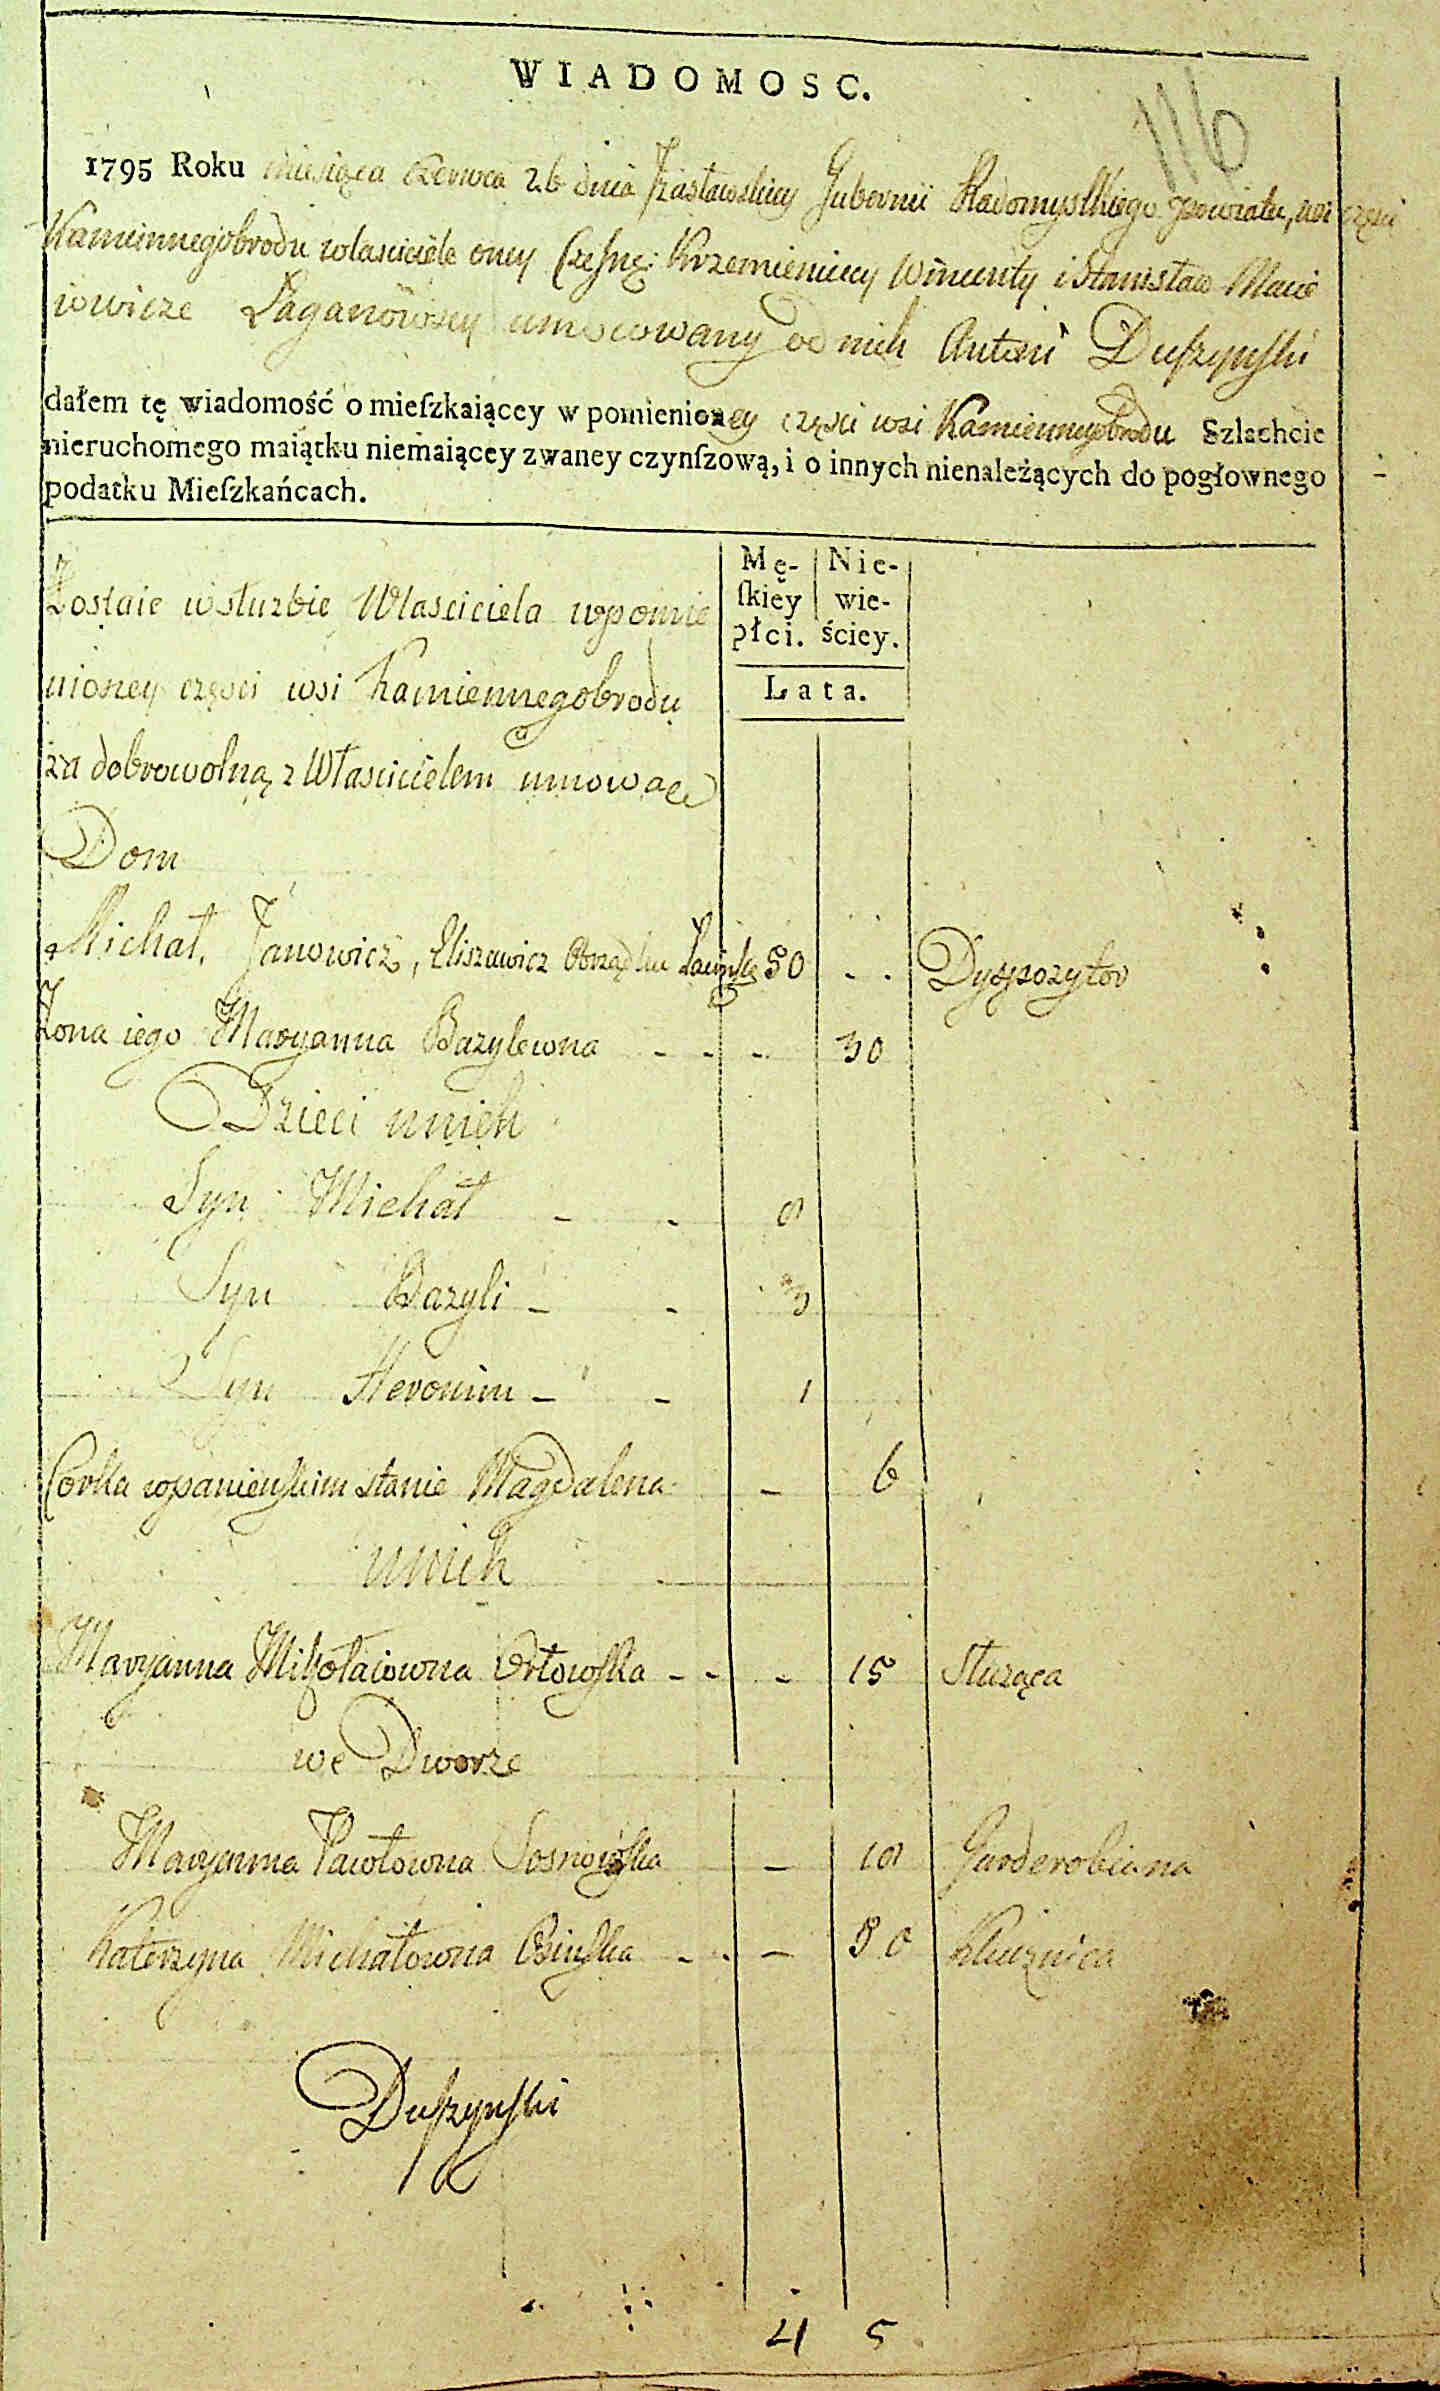 WIADOMOSC.
116
1795 Roku miesiąca Czerwca 26 dnia Izasławskiey Gubernii Radomyslskiego powiatu, wsi części
Kamiennegobrodu własciciele oney Krzemieniccy Wincenty i Stanisław Macie
iowicze Łaganowscy umocowany od nich Antoni Duſzynſki
dałem tę wiadomość o mieſzkaiącey w pomienioney części wsi Kamiennegobrodu Szlachcie
nieruchomego maiątku niemaiącey zwaney czynſzową, i o innych nienależących do pogłownego
podatku Mieſzkańcach.
Mę- Nie-
ſkiey wie-
płci. ściey.
Lata.
Zostaie w służbie Własciciela wpomie
nioney części wsi Kamiennegobrodu
za dobrowolną z Włascicielem umowąę
Dom
Michał Janowicz, Eliszewicz Obrządku Łacinſkie 50 - - Dyspozytor
Zona iego Maryanna Bazylewna - - - 30
Dzieci unich
Syn Michał - - 8
Syn Bazyli - - 3
Syn Heronim - - 1
Corka wpanieńſkim stanie Magdalena - 6
unich
Maryanna Mikołaiowna Orłowſka - - - 15 Służąca
we Dworze
Maryanna Pawłowna Sosnowſka - 18 Garderobiana
Katerzyna Michałowna - - - 50 Klucznica
Duſzynſki
4 5